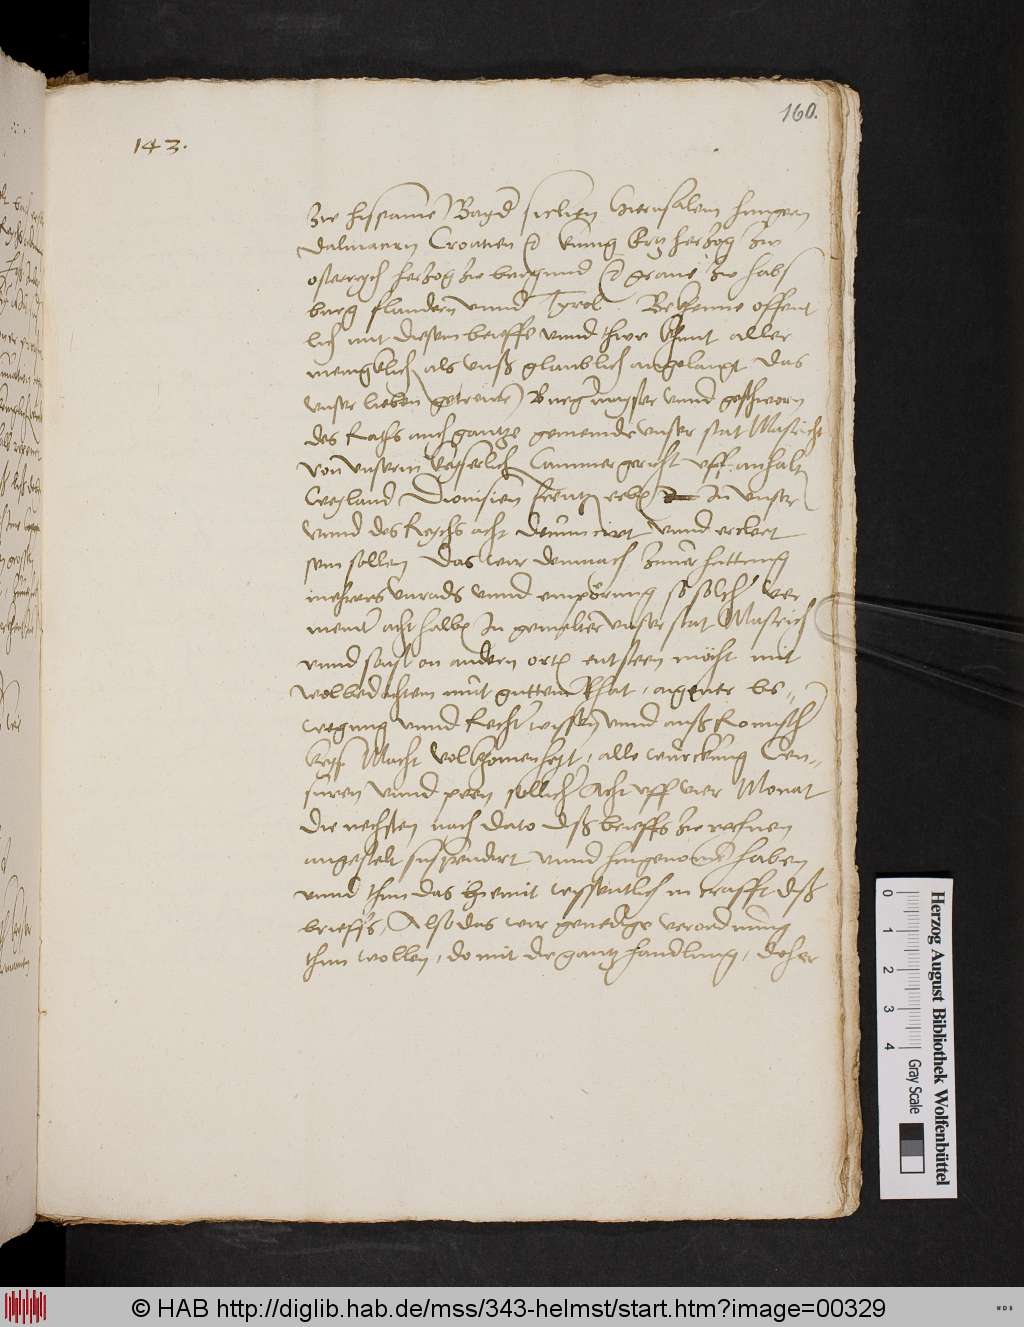 160.
143.
zu hispanie Bayd sicilien Hierusalem hungern
dalmacien Croatien &c kunig Ertzherzog zu
osterreych herzog zu burgund &c graue zu habs
burg flandern vnnd Tyrol. Bekenne offent
lich mit diesem brieffe vnnd thue kunt aller
mengklich als vnß glaublich angelangt das
vnser lieben getrewe Burgmeyster vnnd geschworn
des Raths auch gantze gemeinde vnser stat Mastricht
von vnserm keyserlich Cammergericht vff anhalt
weyland Dionisien erben In vnser
vnnd des Reychs acht denuncirt vnnd erclert
sein sollen Das wir demnach zuuerhuttung
mehrers vnrads vnnd empörung so solcher ver
meinter acht halb In gemelter vnser stat Mastrich
vnnd sunst on andern ort entsteen möcht mit
wolbedachtem mut guttem Rhat, aigner be„
wegung vnnd Rechter wissen vnnd auß Romischer
keys. Macht volkomenheyt, alle wurckung Cen„
suren vnnd peen sollicher Acht vff vier Monat
die nechsten nach dato diß brieffs zu rechnen
angestelt suspendirt vnnd hingenomen haben
vnnd thun das hiemit wyssentlich in crafft diß
brieffs, Also das wir genedige verordnung
thun wollen, do mit die gantz handlung, doher
Herzog August Bibliothek Wolfenbüttel
0 1 2 3 4
Gray Scale
© HAB http://diglib.hab.de/mss/343-helmst/start.htm?image=00329
WDB